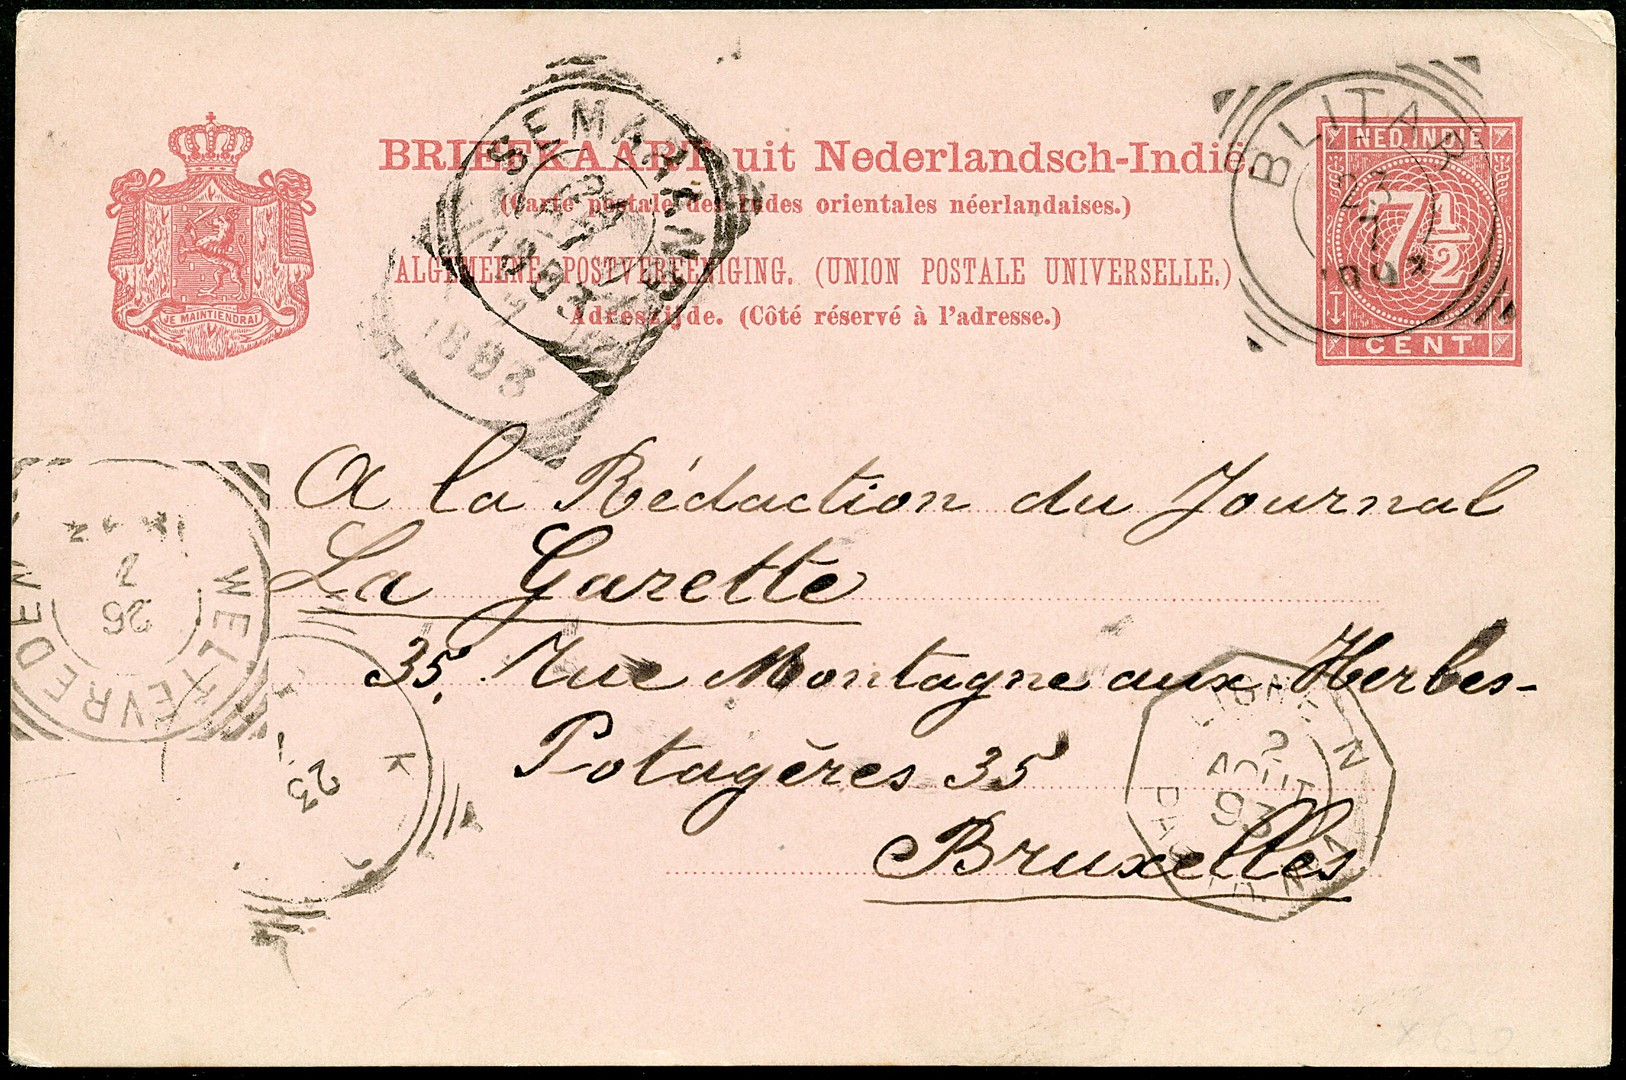 BRIEFKAART uit Nederlandsch-Indië.
(Carte postale des Indes orientales néerlandaises.)
ALGEMEENE POSTVEREENIGING. (UNION POSTALE UNIVERSELLE.)
Adreszijde. (Côté réservé à l'adresse.)
JE MAINTIENDRAI
NED. INDIE
7 1/2
CENT
BLITAR
23
7
1893
1893
A la Rédaction du Journal
La Gazette
35, Rue Montagne aux-Herbes-
Potagères 35
Bruxelles
WELTEVREDEN
26
7
K
23
LIGNE N
2
AOUT
93